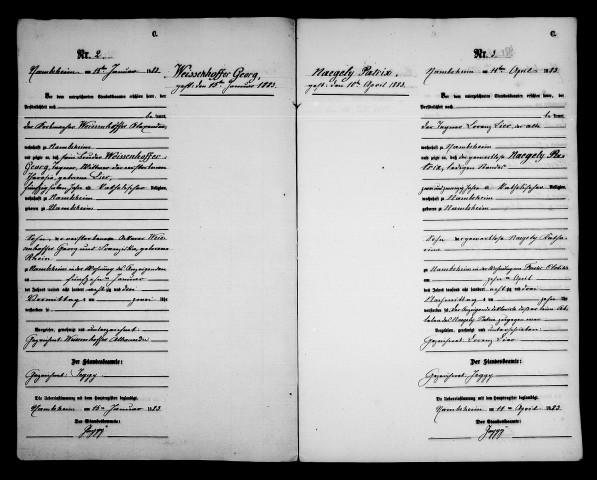 C.
Nr. 2.
Namsheim am 15ten Januar 1883.
Weissenhoffer Georg,
gest. den 15. Januar 1883.
Vor dem unterzeichneten Standesbeamten erschien heute, der
Persönlichkeit nach
be kannt,
der Weissenhoffer Alexander
wohnhaft zu Namsheim
und zeigte an, daß sein Bruder Weissenhoffer
Georg, Wittwer der verstorbenen
Theresia geborene Sier,
Jahre alt, katholischer Religion,
wohnhaft zu Namsheim
geboren zu Namsheim
Sohn der verstorbenen Eheleute Weis-
senhoffer Georg und geborene
Rhein
zu Namsheim in der Wohnung des Anzeigenden
am fünfzehnten Januar
des Jahres tausend acht hundert achtzig und drei
Vormittags um zwei Uhr
verstorben sei.
Vorgelesen, genehmigt und unterzeichnet.
Gezeichnet Weissenhoffer Alexander
Der Standesbeamte:
Gezeichnet: Jeggy
Die Uebereinstimmung mit dem Hauptregister beglaubigt.
Namsheim am 15ten Januar 1883.
Der Standesbeamte:
Jeggy
C.
Nr. 3.
Naegely Patrix,
gest. den 10ten April 1883.
Namsheim am 11ten April 1883.
Vor dem unterzeichneten Standesbeamten erschien heute, der
Persönlichkeit nach
be kannt,
der Lorenz Sier, der alte
wohnhaft zu Namsheim
und zeigte an, daß Naegely Pa-
trix, ledigen Standes
Jahre alt, katholischer Religion,
wohnhaft zu Namsheim
geboren zu Namsheim
Sohn der Naegely Katha-
rina
zu Namsheim in der Wohnung
am zehnten April
des Jahres tausend acht hundert achtzig und drei
Nachmittags um zehn Uhr
verstorben sei. Der Anzeigende
des Naegely Patrix zugegen war
Vorgelesen, genehmigt und unterschrieben
Gezeichnet: Lorenz Sier
Der Standesbeamte:
Gezeichnet: Jeggy
Die Uebereinstimmung mit dem Hauptregister beglaubigt.
Namsheim am 11ten April 1883.
Der Standesbeamte:
Jeggy